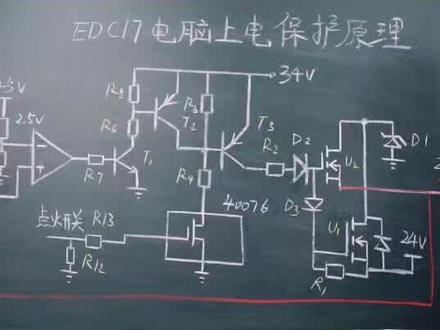 EDC17电脑上电保护原理
34V
R5
2.5V
R8
R6
T2
T3
D2
D1
R2
U2
R7
T1
R9
D3
40076
点火开关
R13
U1
24V
R12
R1